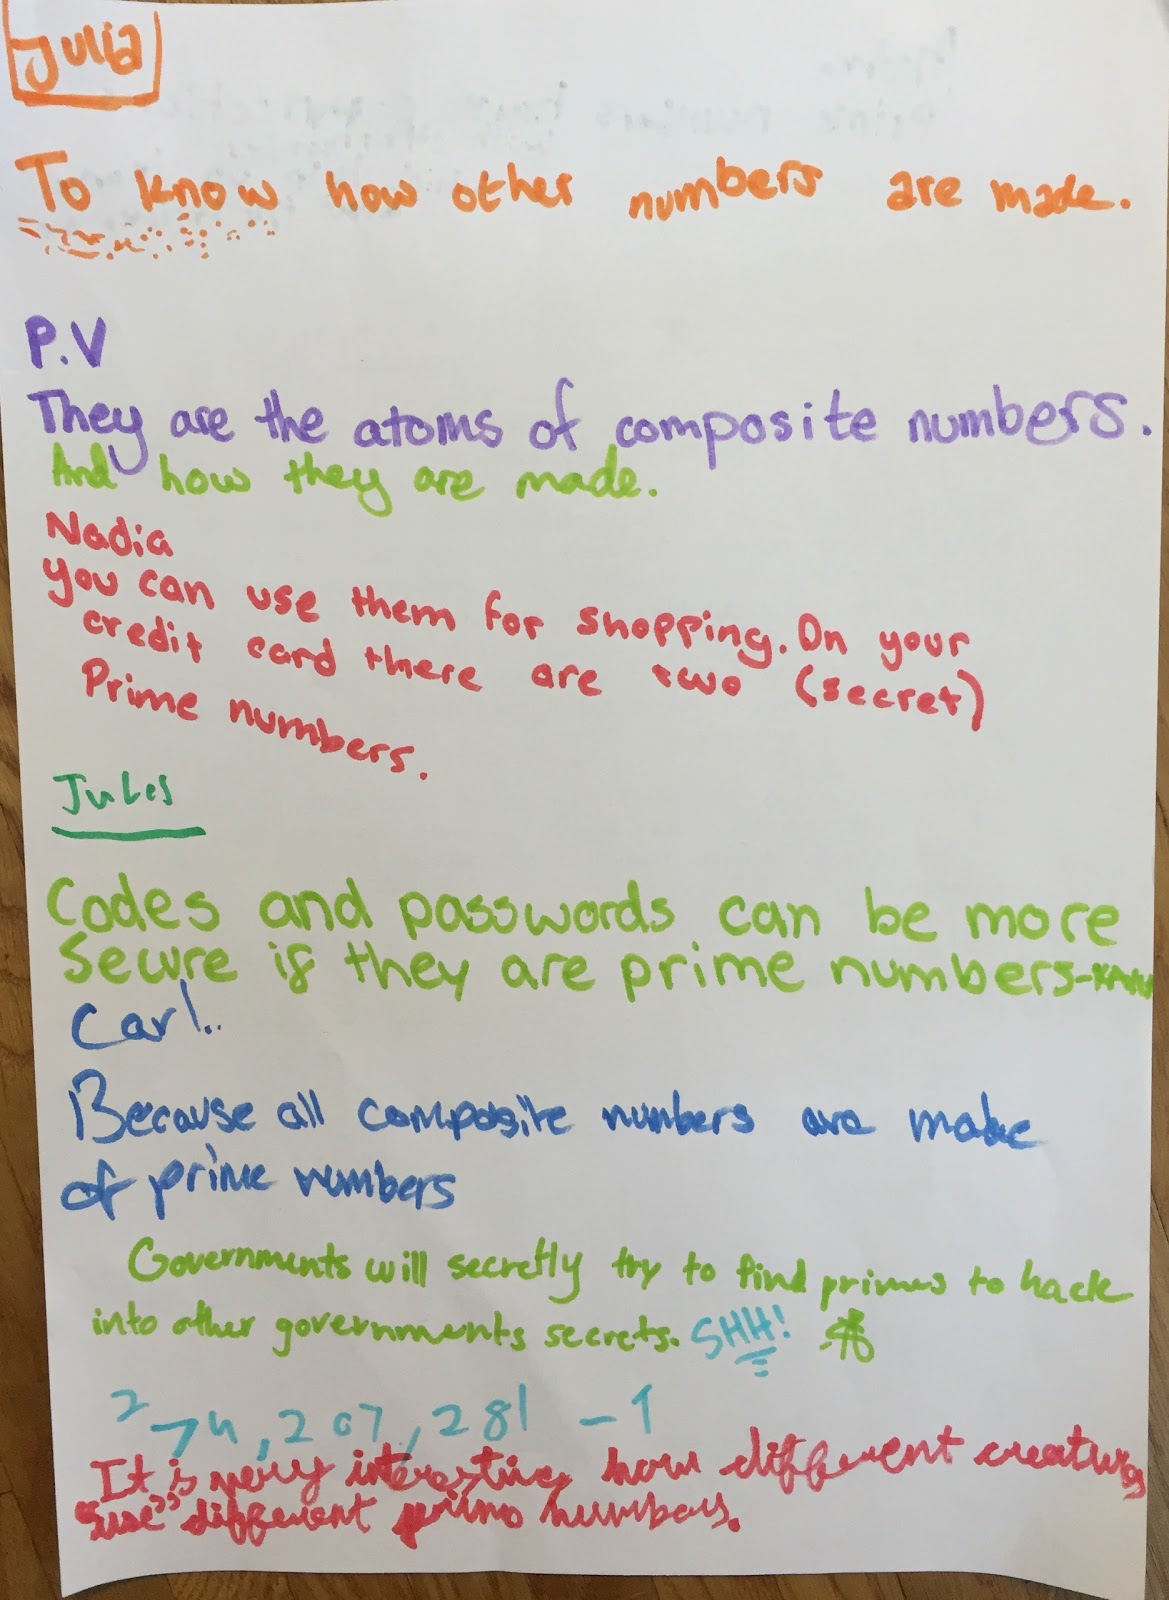 Julia
To know how other numbers are made.
P.V
They are the atoms of composite numbers.
And how they are made.
Nadia
you can use them for shopping. On your
credit card there are two (secret)
Prime numbers.
Jules
Codes and passwords can be more
secure if they are prime numbers-
Carl..
Because all composite numbers are made
of prime numbers
Governments will secretly try to find primes to hack
into other governments secrets. SHH!
2 74,207,281 - 1
It is very interesting how different creatures
"use" different prime numbers.